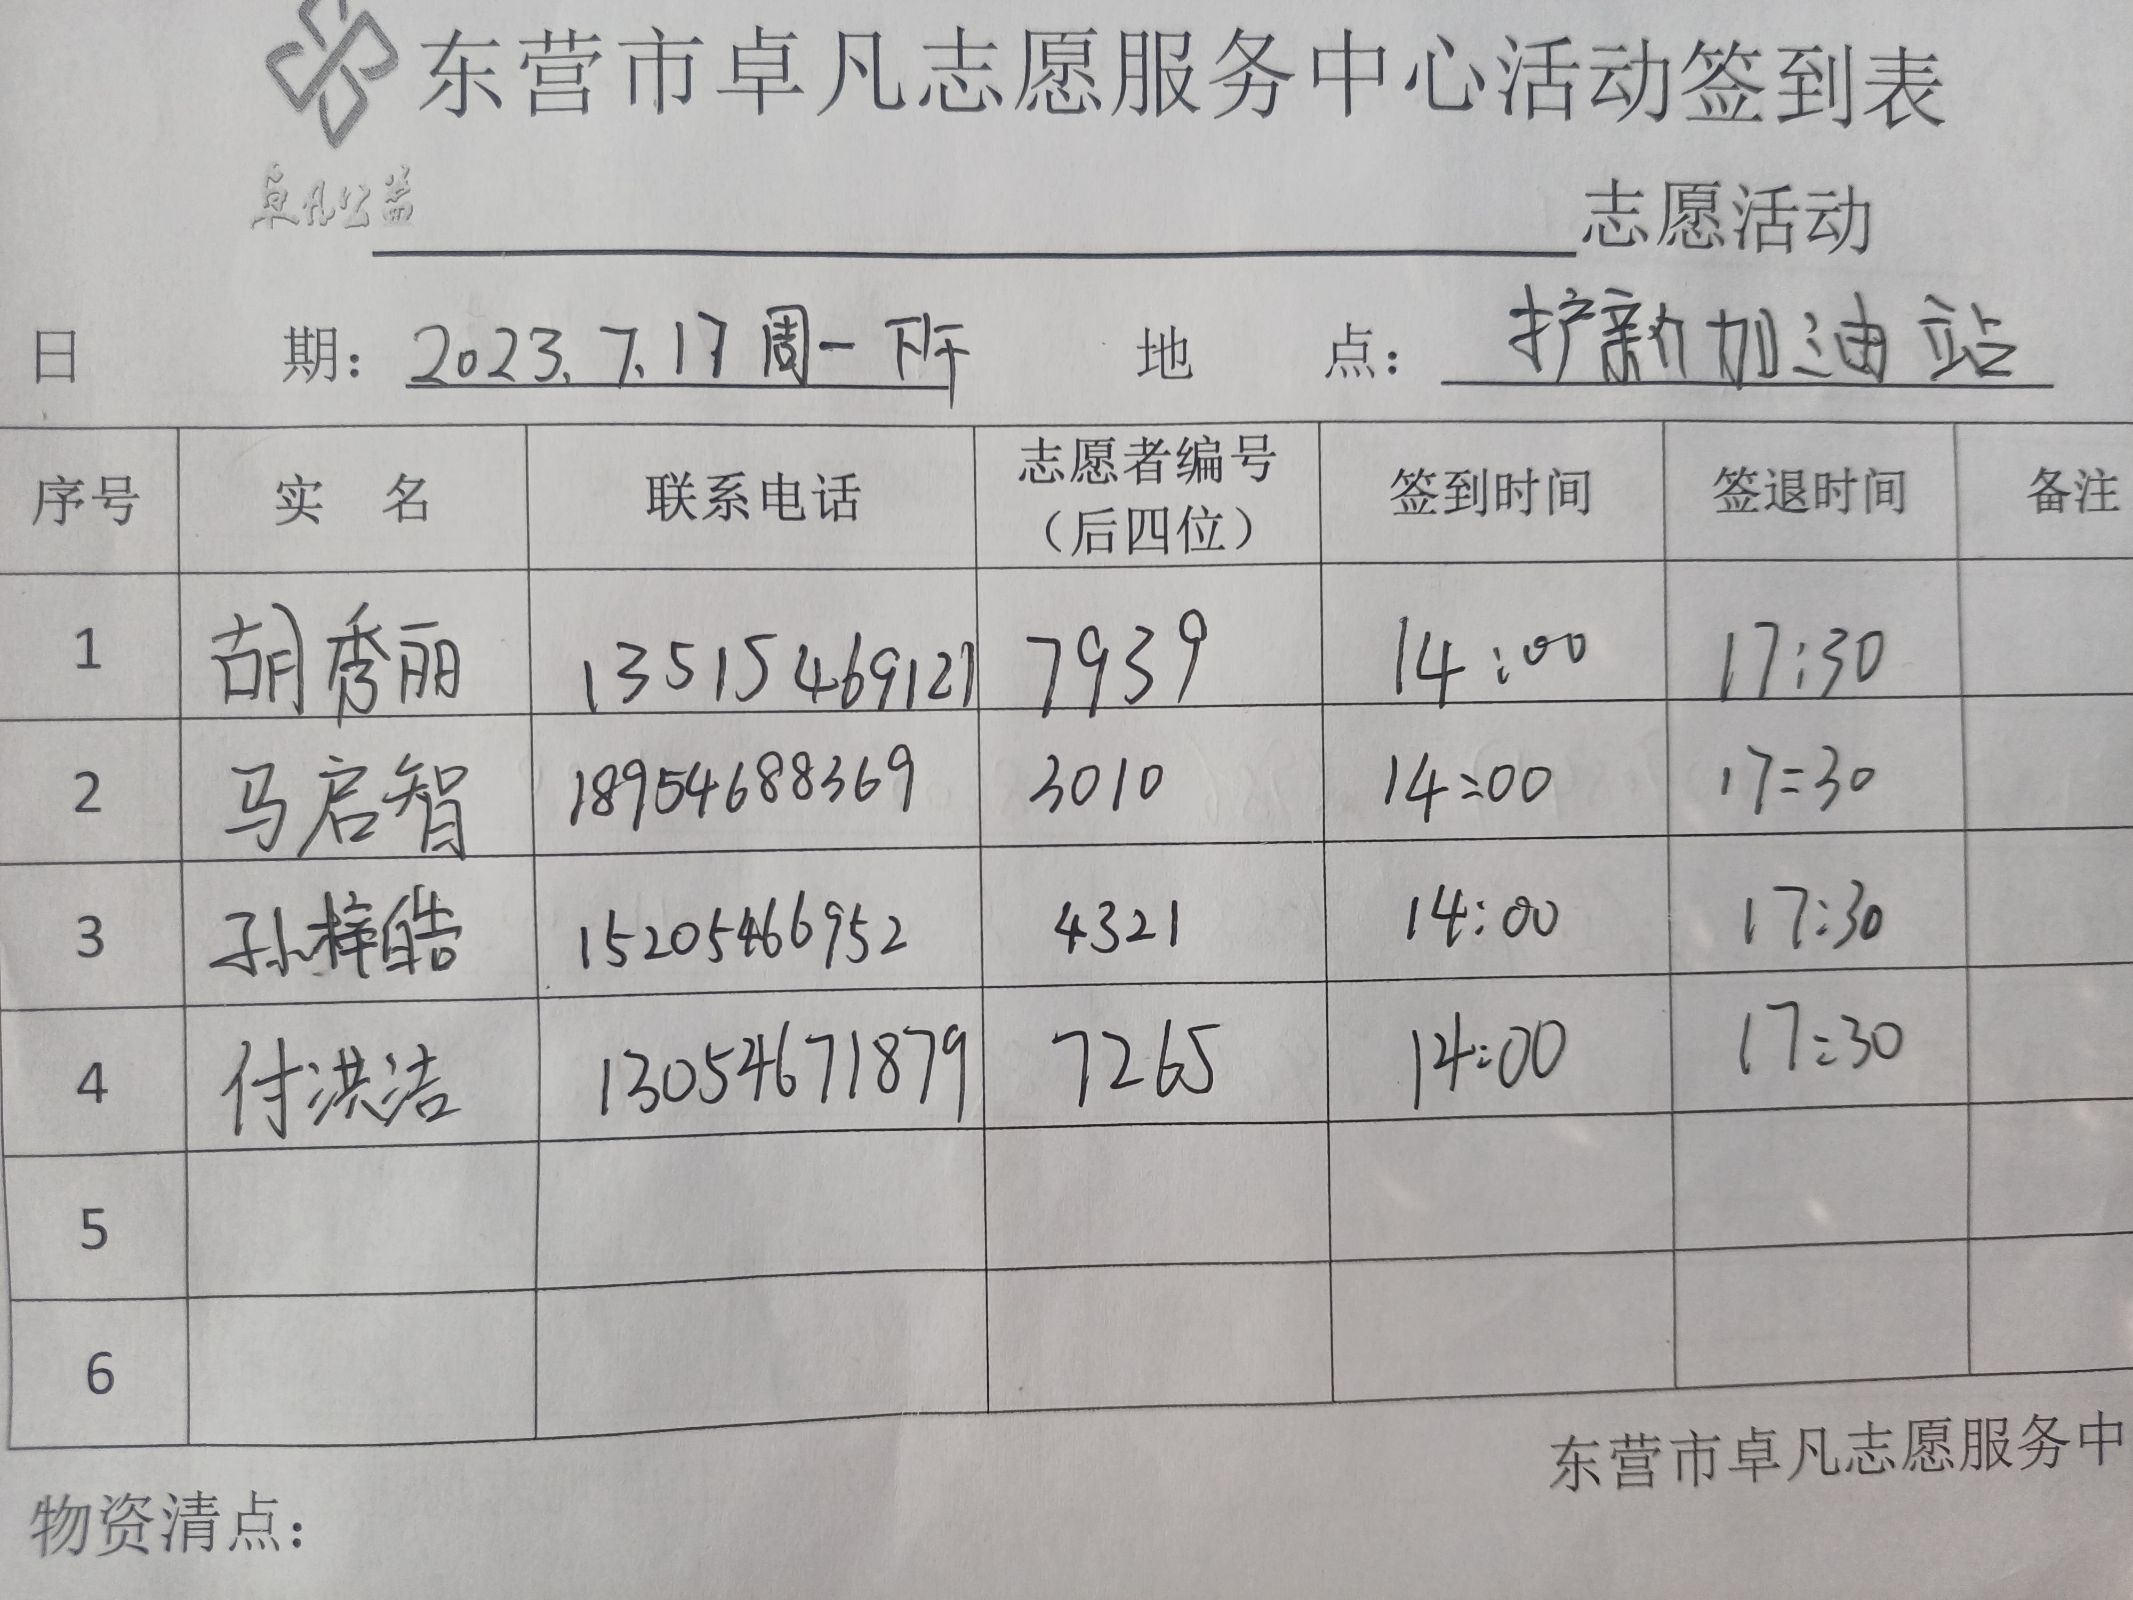 东营市卓凡志愿服务中心活动签到表
卓凡公益
志愿活动
日 期: 2023.7.17周一下午 地 点: 护新加油站
序号 实 名 联系电话 志愿者编号(后四位) 签到时间 签退时间 备注
1 胡秀丽 13515469127 7939 14:00 17:30
2 马启智 18954688369 3010 14:00 17:30
3 孙梓皓 15205466952 4321 14:00 17:30
4 付洪洁 13054671879 7265 14:00 17:30
5
6
东营市卓凡志愿服务中
物资清点: